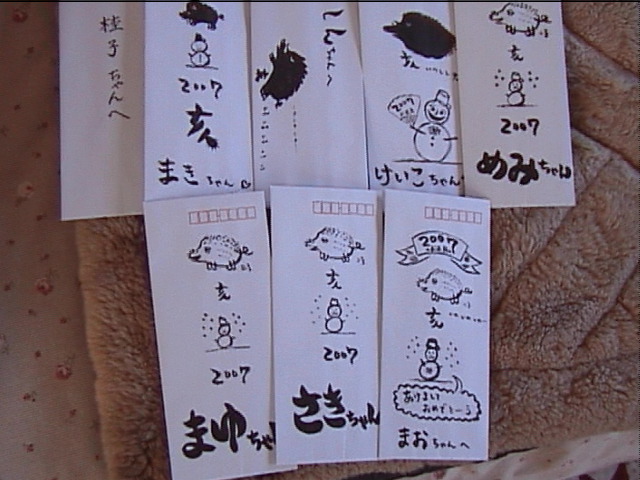 桂子ちゃんへ
2007
亥
まきちゃん
亥
2007
けいこちゃん
亥
2007
めみちゃん
亥
2007
まゆちゃん
亥
2007
さきちゃん
2007
亥
おめでとーう
まおちゃんへ